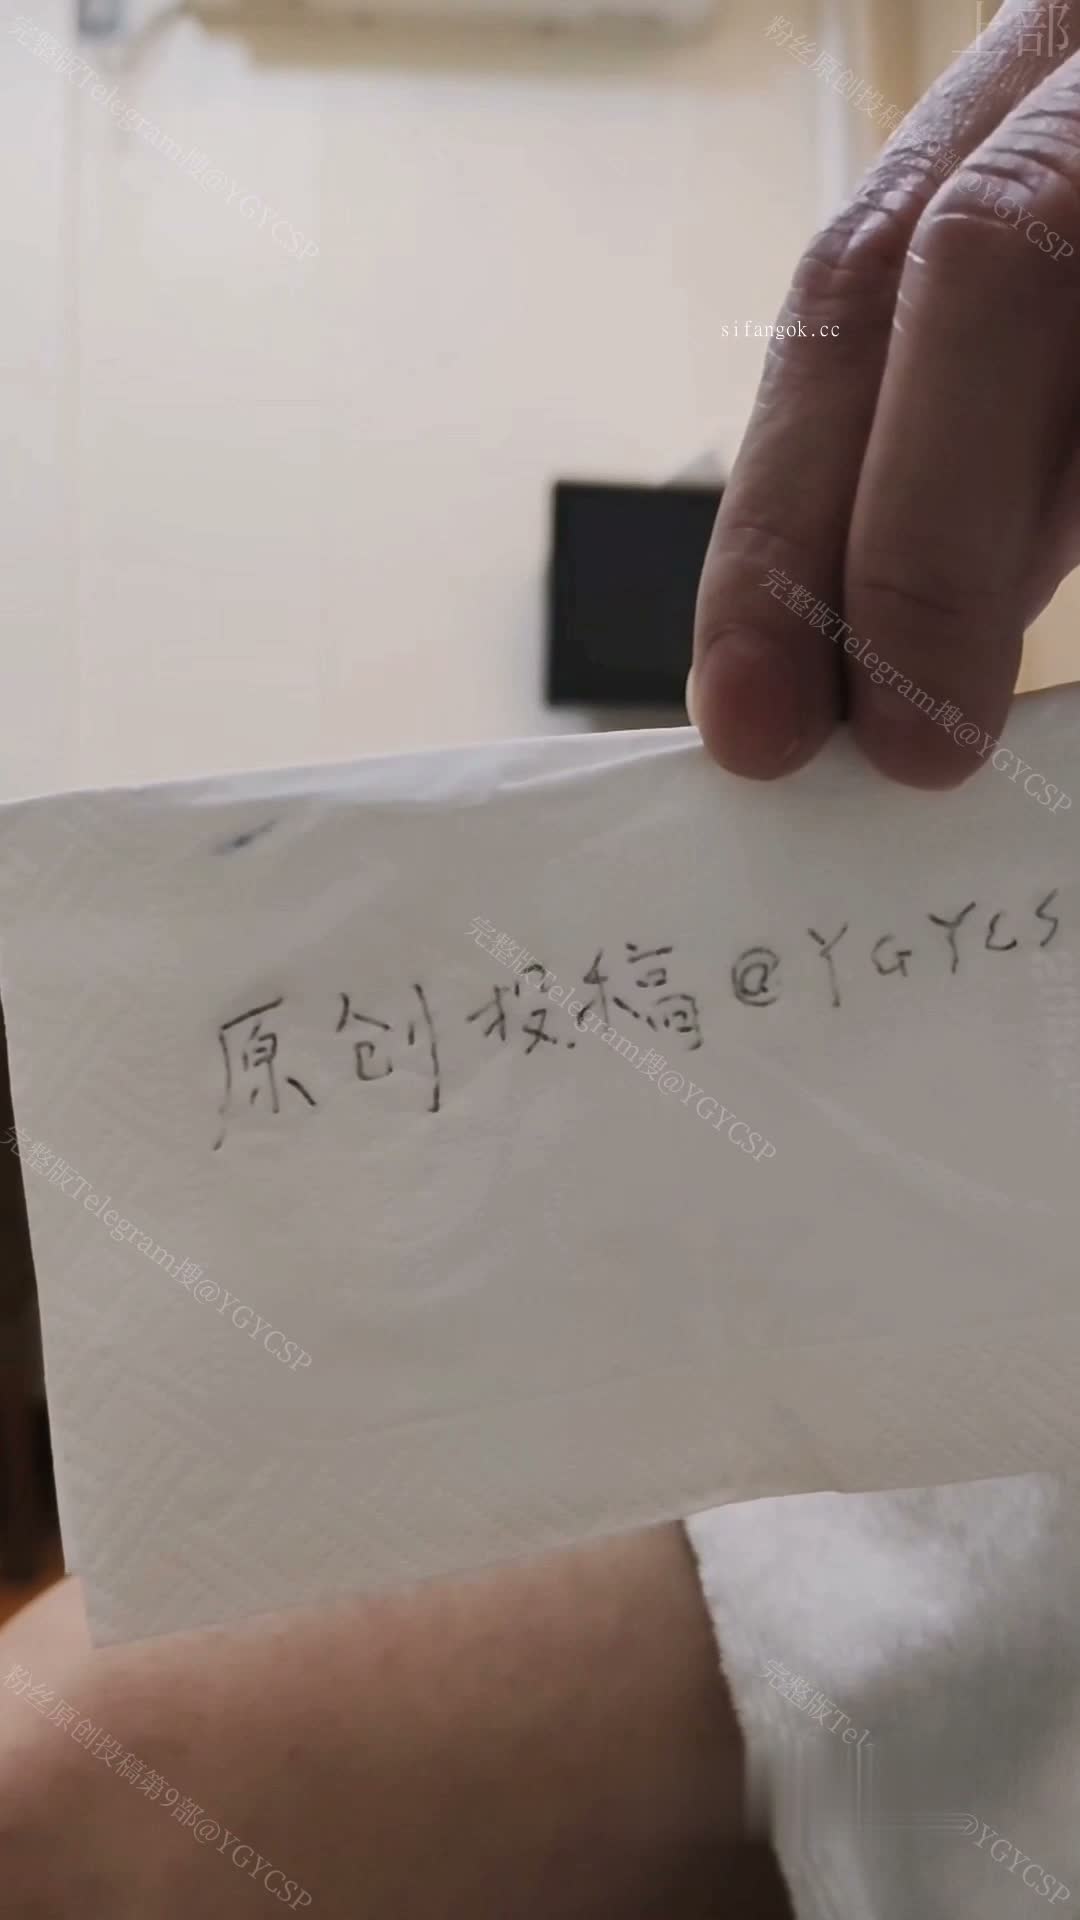 上部
完整版Telegram搜@YGYCSP
粉丝原创投稿第9部@YGYCSP
sifangok.cc
完整版Telegram搜@YGYCSP
原创投稿@YGYCS
完整版Telegram搜@YGYCSP
完整版Telegram搜@YGYCSP
粉丝原创投稿第9部@YGYCSP
完整版Tel
@YGYCSP